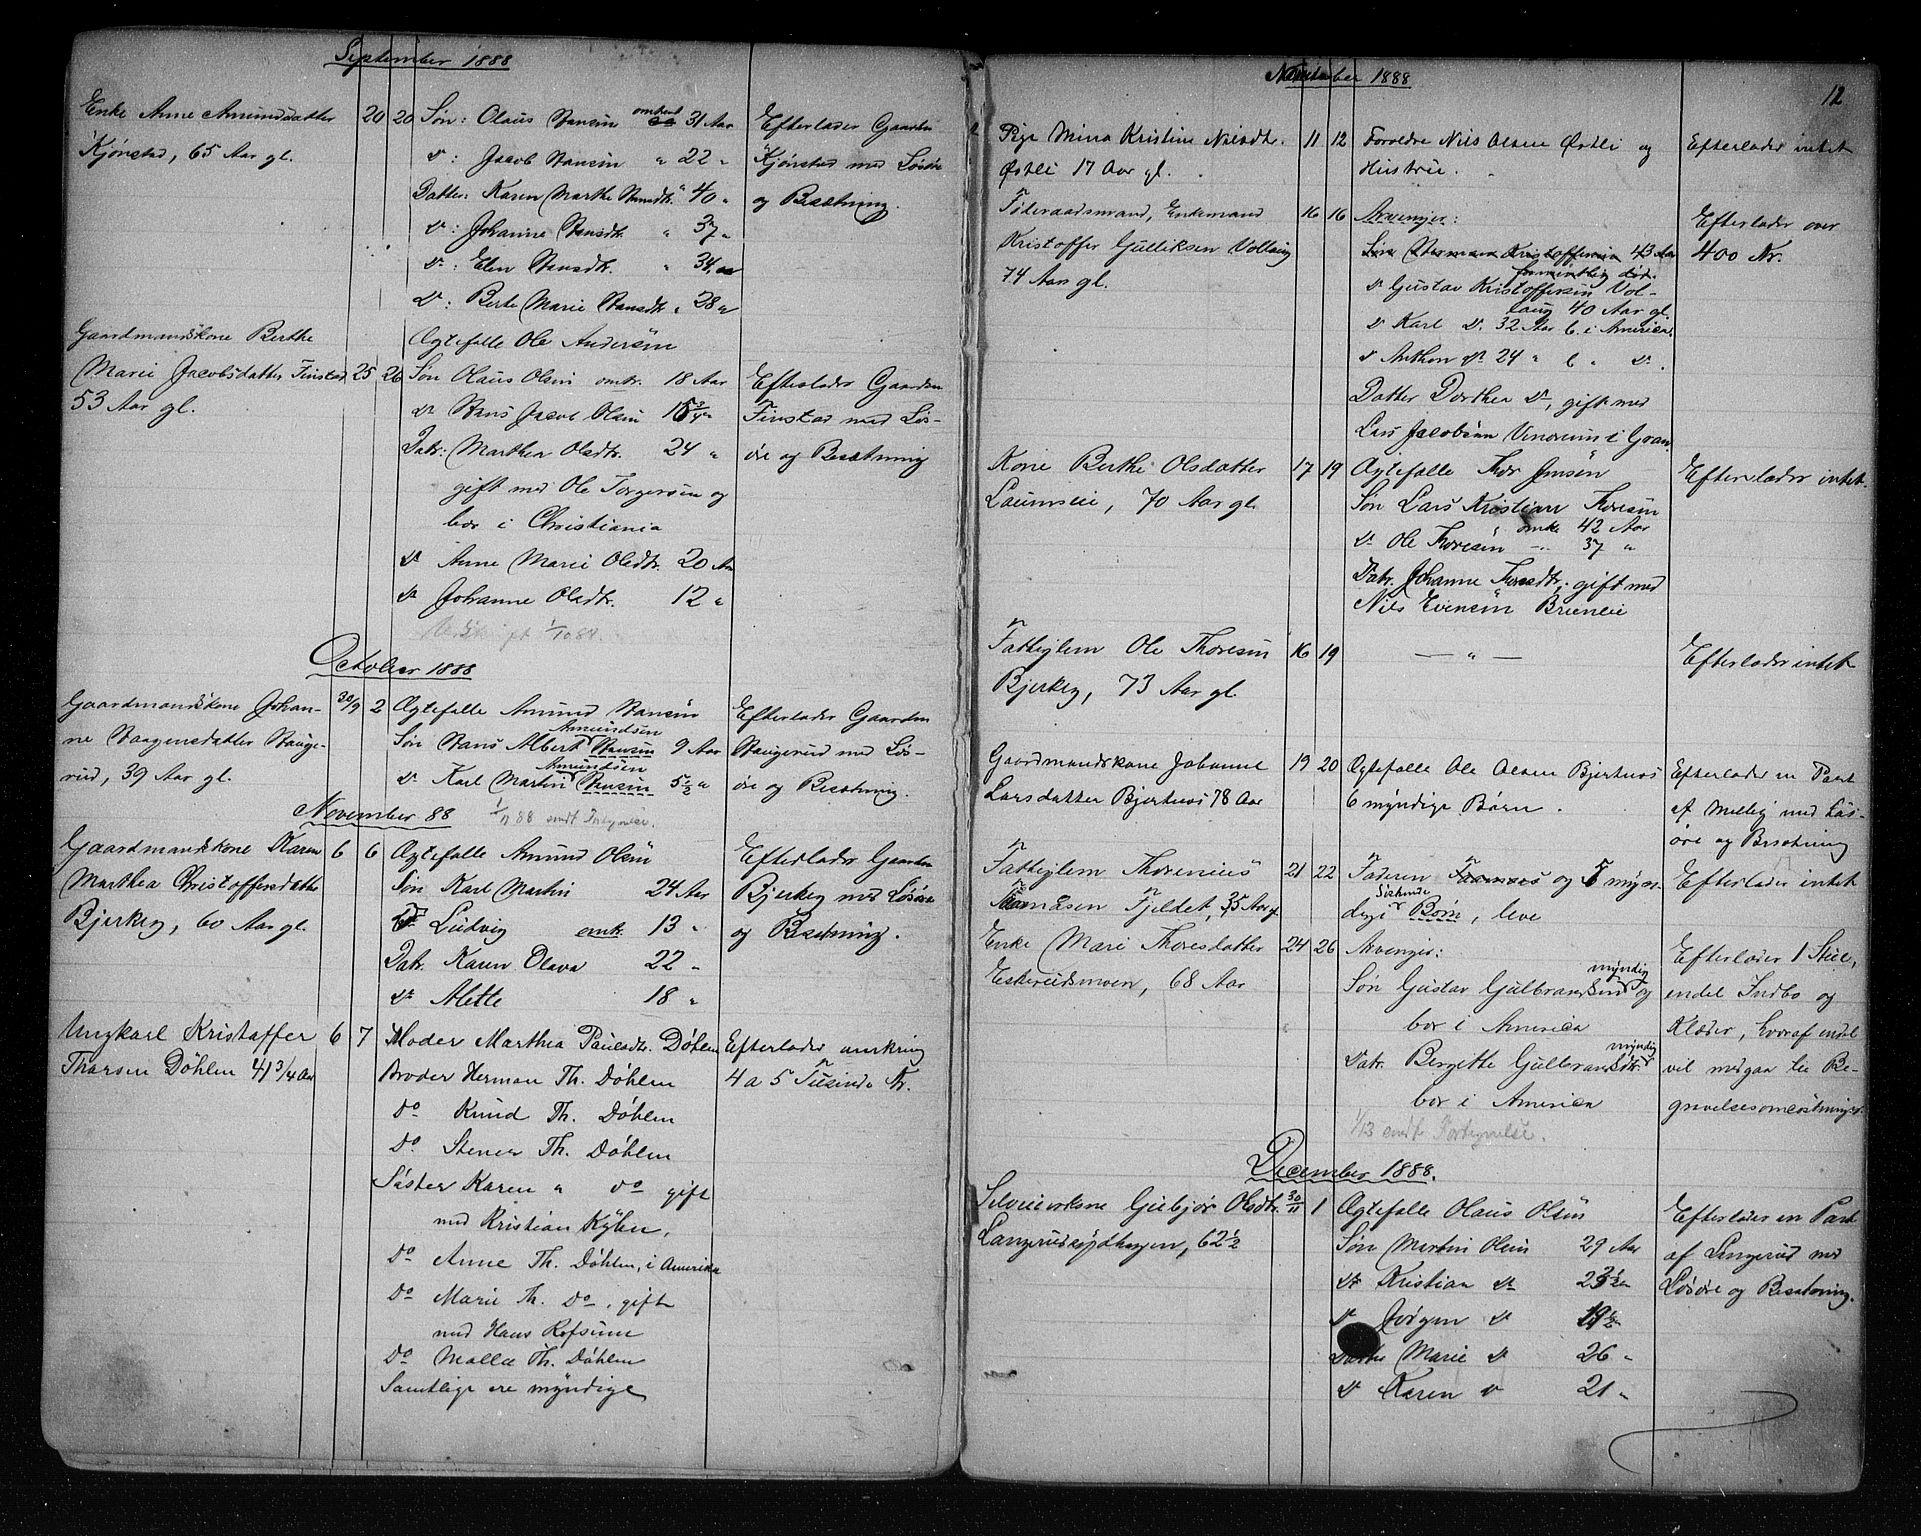 September 1888
Enke Anne Amundsdatter
Kjønstad, 65 Aar gl.
20 20
Søn: Olaus Hansen omtrent 31 Aar
do: Jacob Hansen " 22 "
Datter: Karen Marthe Hansdtr. " 40 "
do: Johanne Hansdtr. " 37 "
do: Elen Hansdtr. " 34 "
do: Berte Marie Hansdtr. " 28 "
Efterlader Gaarden
Kjønstad med Løsøre
og Besætning.
Gaardmandskone Berthe
Marie Jacobsdatter Finstad
53 Aar gl.
25 26
Ægtefælle Ole Andersen
Søn Olaus Olsen omtr. 18 Aar
do Hans Jacob Olsen 15 3/4 "
Datr: Marthea Olsdtr. 24 "
gift med Ole Torgersen og
bor i Christiania
do Anne Marie Olsdtr. 20 Aar
do Johanne Olsdtr. 12 "
1/10 88.
Efterlader Gaarden
Finstad med Løs-
øre og Besætning
October 1888
Gaardmandskone Johan-
ne Haagensdatter Hauge-
rud, 39 Aar gl.
30/9 2
Ægtefælle Amund Hansen
Amundsen
Søn Hans Albert Hansen 9 Aar
Amundsen
do Karl Martin Hansen 5 1/2 "
Efterlader Gaarden
Haugerud med Løs-
øre og Besætning.
November 88
1/11 88 sendt Fortegnelse.
Gaardmandskone Karen
Marthea Christoffersdatter
Bjerkey, 60 Aar gl.
6 6
Ægtefælle Amund Olsen
Søn Karl Martin 24 Aar
do Ludvig omtr. 13 "
Datr. Karen Olava 22 "
do Alette 18 "
Efterlader Gaarden
Bjerkey med Løsøre
og Besætning.
Ungkarl Kristoffer
Tharsen Døhlen 41 3/4 Aar
6 7
Moder Marthea Paulsdtr. Døhlen
Broder Herman Th. Døhlen
do Knud Th. Døhlen
do Stener Th. Døhlen
Søster Karen " do gift
med Kristian Kyhen,
do Anne Th. Døhlen, i Amerika
do Marie Th. do, gift
med Hans Refsum
do Malla Th. Døhlen
Samtlige ere myndige
Efterlader omkring
4 a 5 Tusinde Kr.
November 1888
12
Pige Mina Kristine Nilsdtr.
Østli 17 Aar gl.
11 12
Foreldre Nils Olsen Østli og
Hustru.
Efterlader intet
Føderaadsmand, Enkemand
Kristoffer Gulliksen Vollaug
74 Aar gl.
16 16
Arvinger:
Søn Herman Kristoffersen 43 Aar
formentlig død.
do Gustav Kristoffersen Vol-
laug 40 Aar gl.
do Karl do. 32 Aar b. i America
do Anthon do 24 " b " do.
Datter Dorthea do, gift med
Lars Jacobsen i Gran
Efterlader over
400 Kr.
Kone Berthe Olsdatter
Laumeie, 70 Aar gl.
17 19
Ægtefælle Thor Jensen
Søn Lars Kristian Thoresen
omtr 42 Aar
do Ole Thoresen 37 "
Datr. Johanne Thorsdtr. gift med
Nils Evensen Breneie
Efterlader intet.
Fattiglem Ole Thoresen
Bjerkey, 73 Aar gl.
16 19
— " —
Efterlader intet
Gaardmandskone Johanne
Larsdatter Bjertnæs 78 Aar
19 20
Ægtefælle Ole Olsen Bjertnæs
6 myndige Børn.
Efterlader en Part
af Melby med Løs-
øre og Besætning
Fattiglem Thorenius
Tomasen Fjeldet, 35 Aar gl
21 22
Faderen og 5 myn-
Søskende
dige Børn, leve
Efterlader intet
Enke Mari Thoresdatter
Eskerudsmoen, 68 Aar
24 26
Arvinger:
myndig
Søn Gustav Gulbrandsen og
bor i America
myndig
Datr. Bergette Gulbrandsdtr.
bor i America
1/13 sendt Fortegnelse.
Efterlader 1 Stue,
endel Indbo og
Klæder, hvoraf endel
vil medgaa til Be-
gravelsesomkostninger.
December 1888.
Selveierkone Gubjør Olsdtr.
Langerudskjødhagen, 62 1/2
30/11 1
Ægtefælle Olaus Olsen
Søn Martin Olsen 29 Aar
do Kristian do 23 1/2 "
do Jørgen do 19 1/2
Datter Marie do 26 "
do Karen do 21 "
Efterlader en Part
af Langerud med
Løsøre og Besætning.